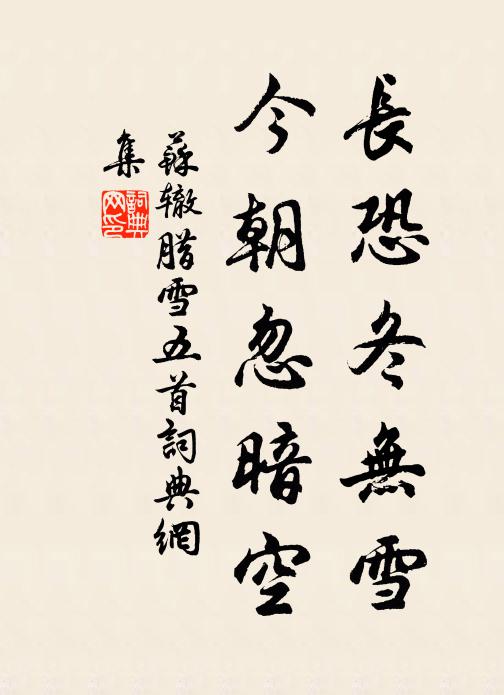 長恐冬無雪
今朝忽暗空
蘇辙腊雪五首詞典網
集
詞典
网印